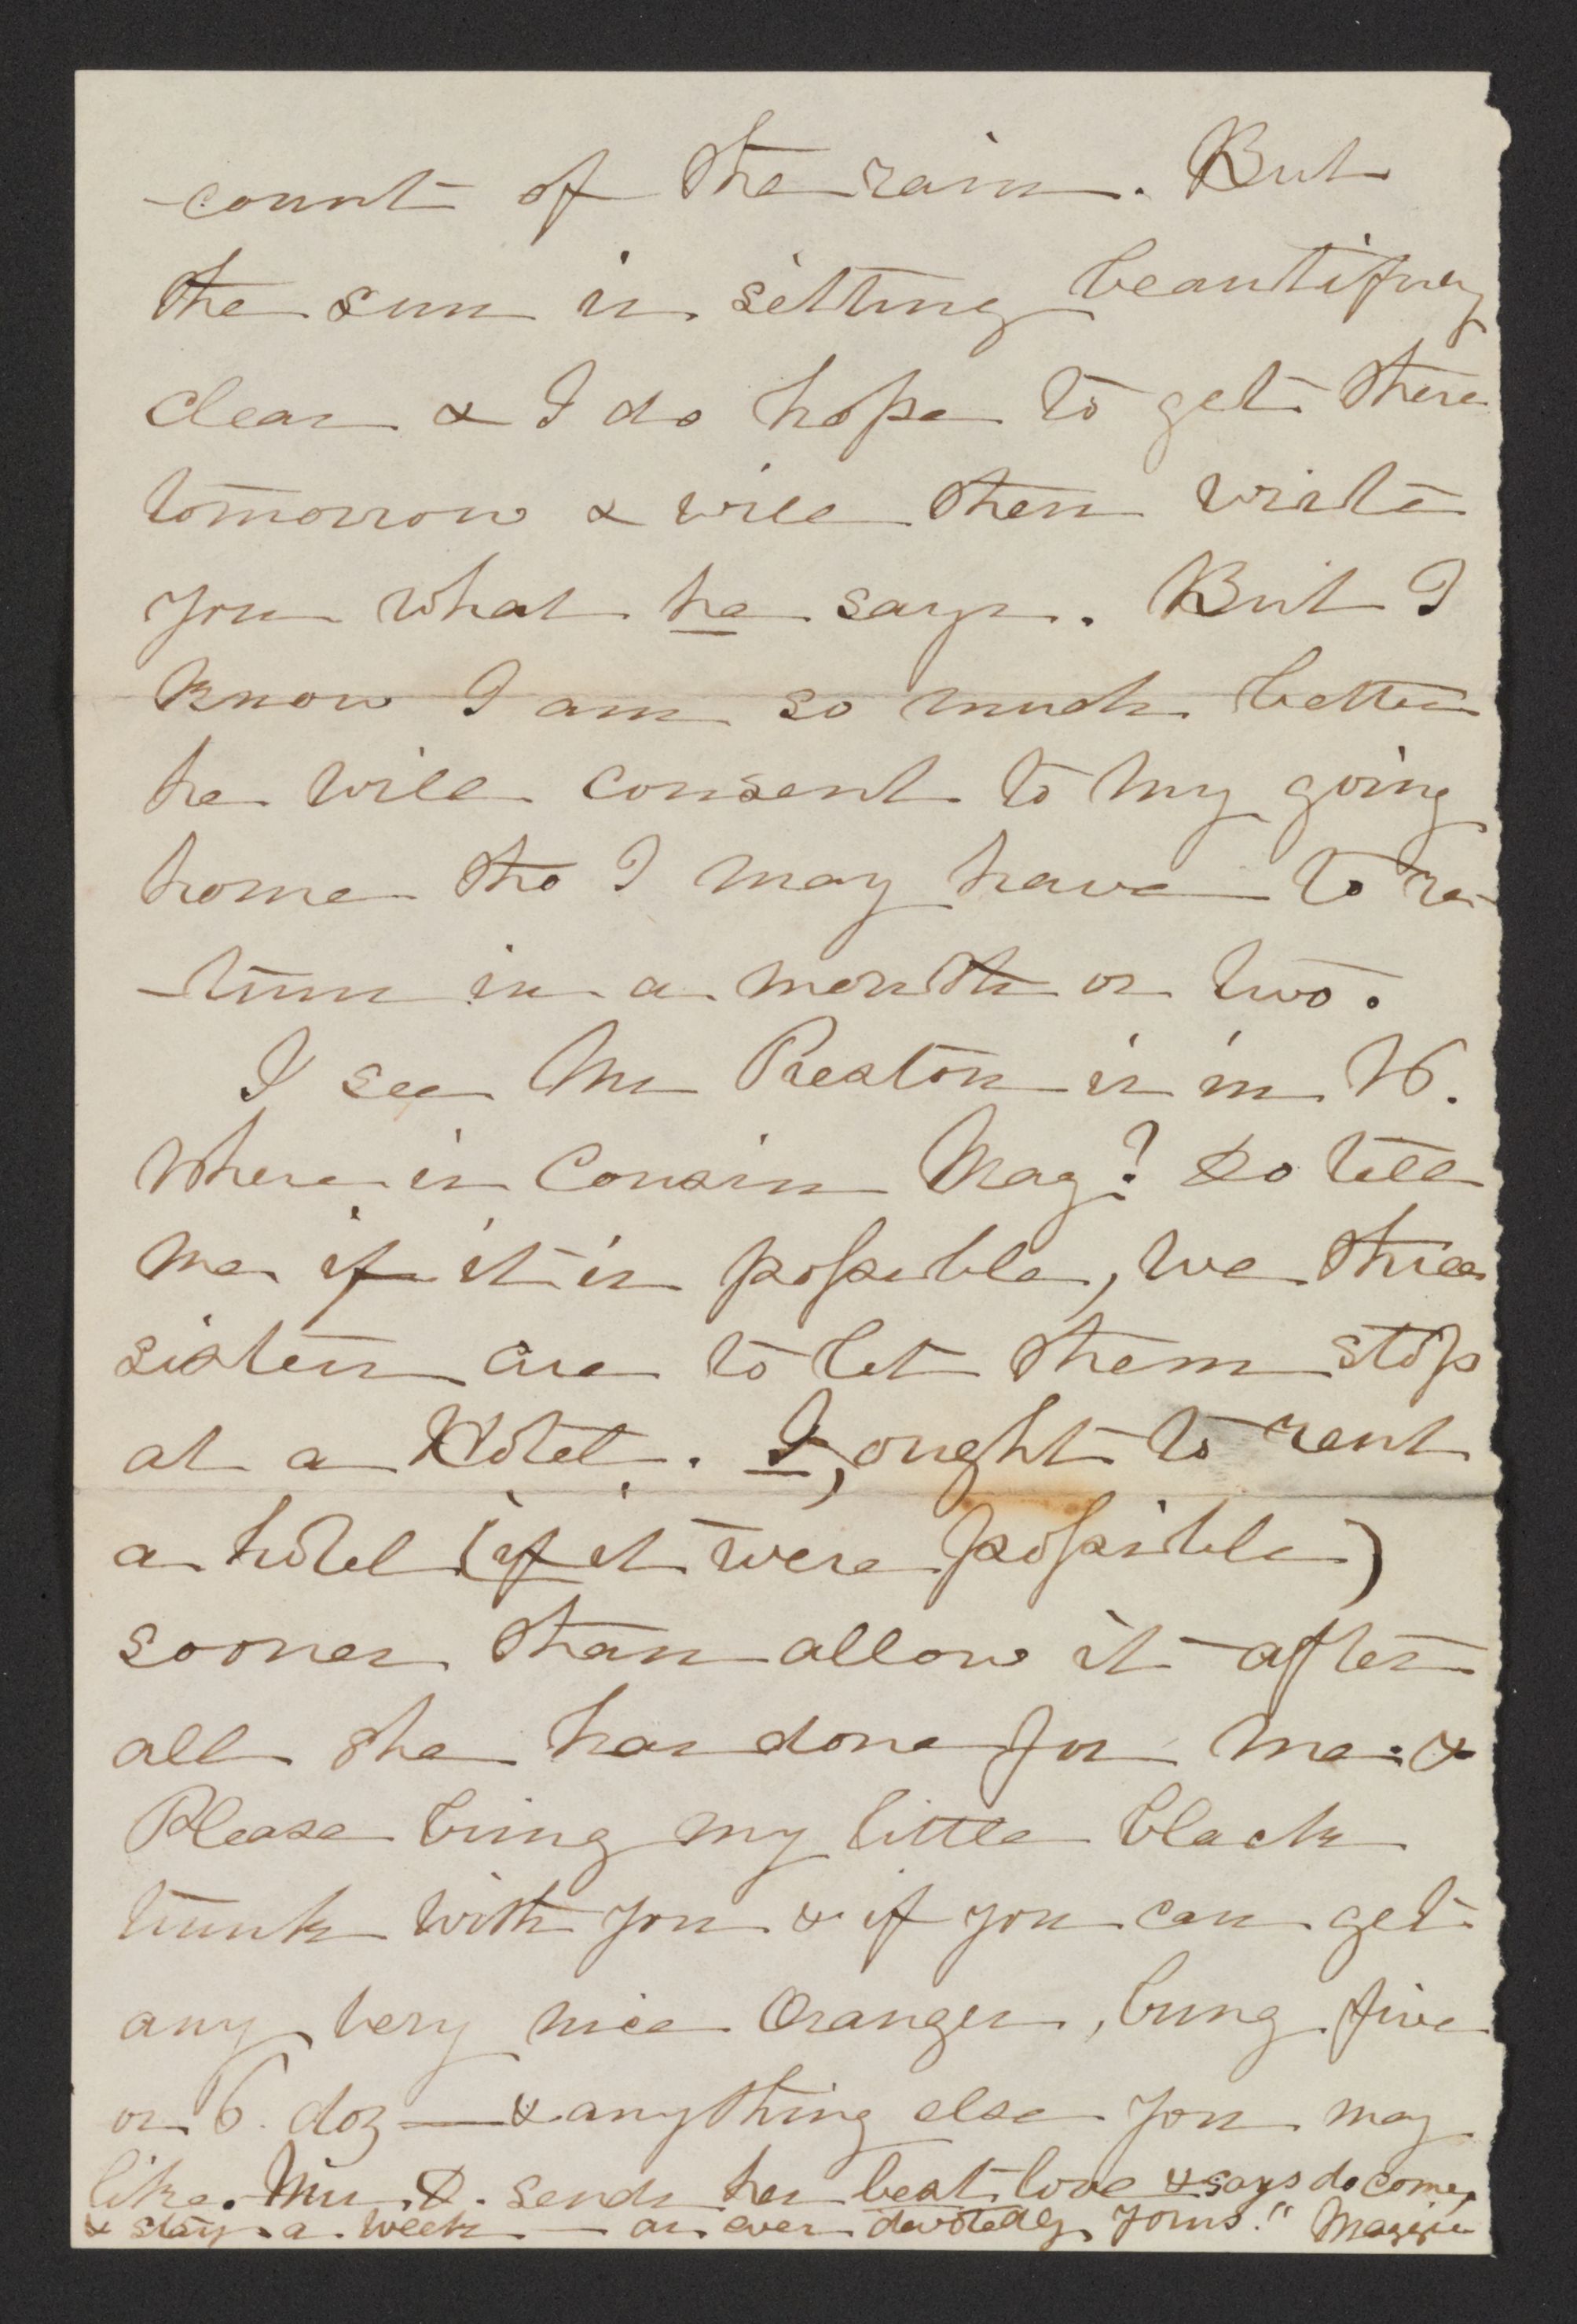 -count of the rain. But
the sun is setting beautifuly
clear & I do hope to get there
tomorrow & will then write
you what he says. But I
know I am so much better
he will consent to my going
home tho I may have to re-
-turn in a month or two.
I see Mr Preston is in W.
Where is Cousin Mag? Do tell
me if it is possible, we three
sisters are to let them stop
at a Hotel. I, ought to rent
a hotel (if it were possible)
sooner than allow it after
all she has done for me. &
Please bring my little black
trunk with you & if you can get
any very nice Oranges, bring five
or 6. doz — & anything else you may
like. Miss D. sends her best love & says do come,
& stay a week — as ever devotedly yours." Maggie